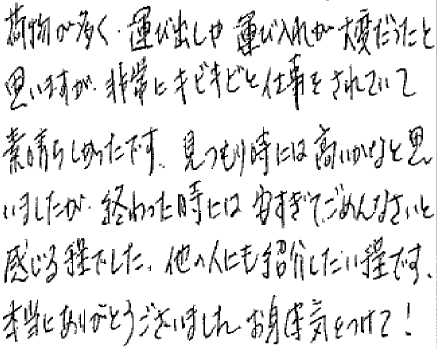 荷物が多く、運び出しや運び入れが大変だったと
思いますが、非常にキビキビと仕事をされていて
素晴らしかったです。見つもり時には高いかなと思
いましたが、終わった時には安すぎてごめんなさいと
感じる程でした。他の人にも紹介したい程です。
本当にありがとうございました。お身体気をつけて！